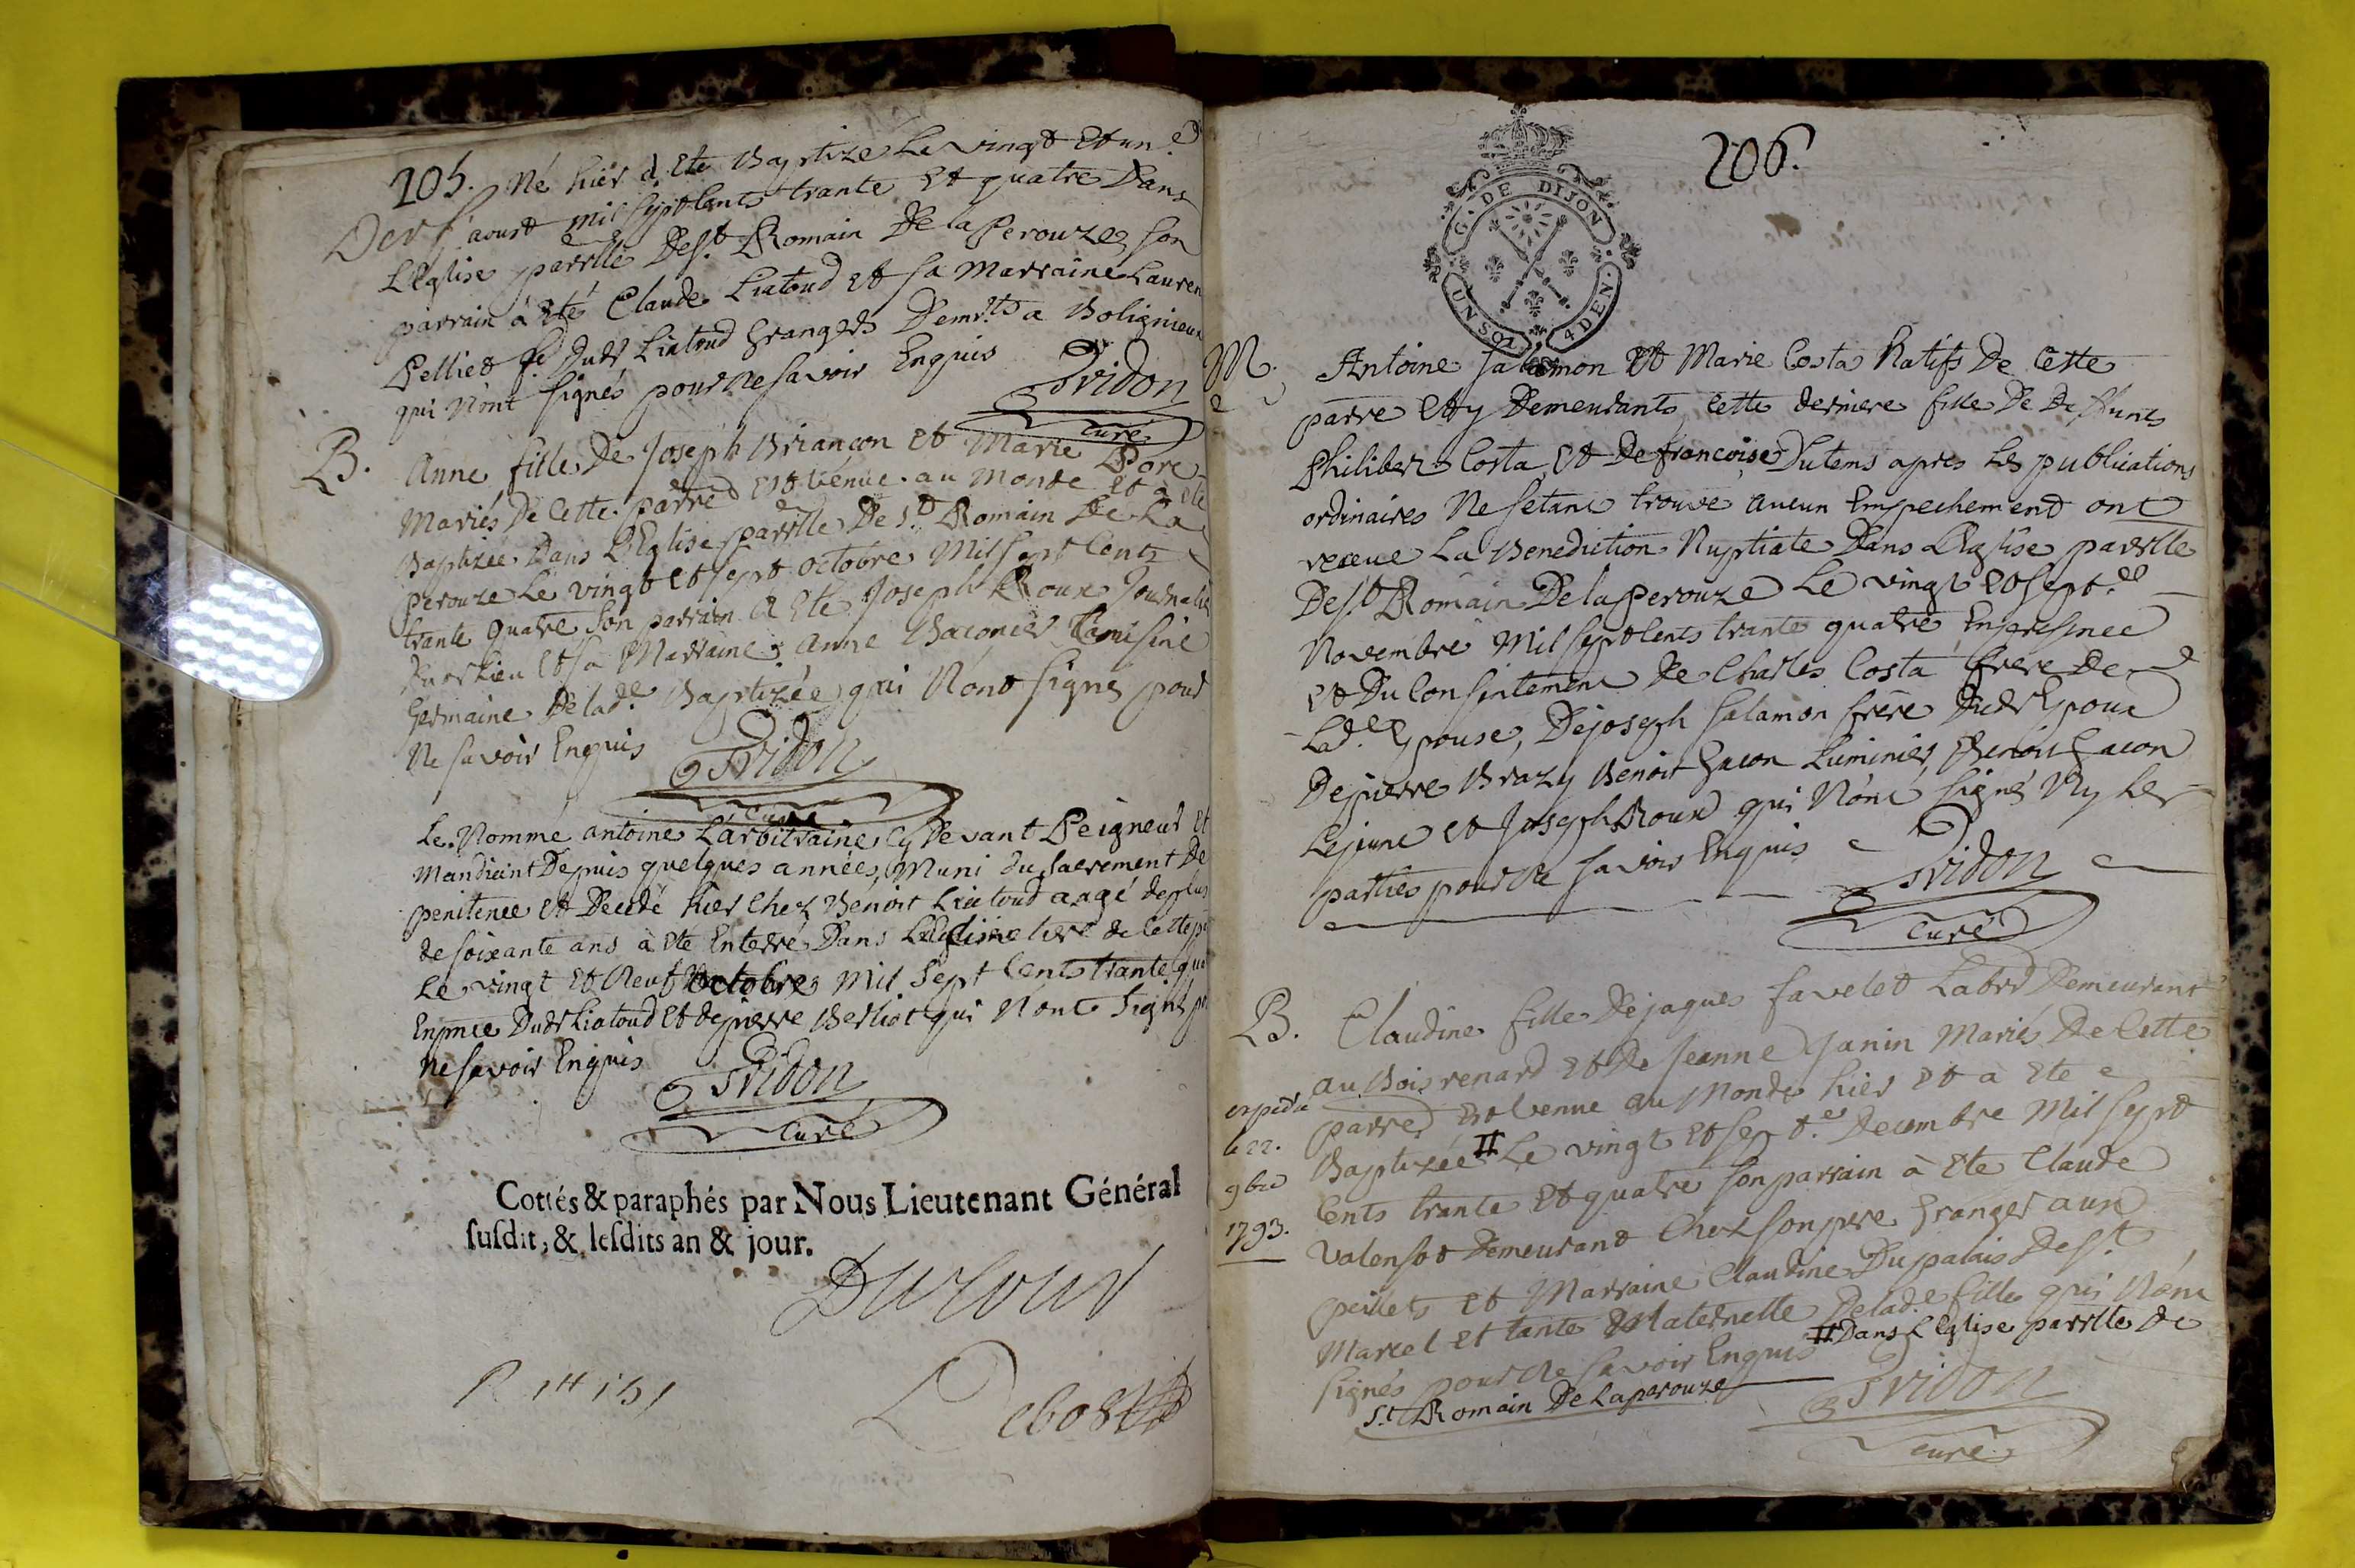 205. Né hier a Ete Baptizé Le vingt Et un e
Der f. aoust mil sept Cents trante et quatre Dans
L'Eglise parrlle De st. Romain De la Perouze, son
parrain a Eté Claude Liatoud et sa Marraine Lauren
Pelliet fe Dudt Liatoud Grangers Demrts a Bolignieux
qui N'ont Signés pour ne savoir Enquis
Tridon
Curé
B. Anne fille De Joseph Briançon et Marie Pore
Mariés De Cette parre Est venue au Monde et a ete
Baptizée Dans L'Eglise parrlle De st. Romain De La
perouze Le vingt et sept octobre Mil sept Cents
trante quatre son parrain a Ete Joseph Roux Journalier
Dudt Lieu et sa Marraine Anne Baconier Cousine
Germaine De lade. Baptizée qui N'ont signés pour
Ne savoir Enquis
Tridon
Curé
Le Nommé antoine L'arbitraine Cy Devant Peigneur et
Mandiant Depuis quelques années, Muni du sacrement De
penitence et Decedé hier Chez Benoit Liatoud aagé de plus
de soixante ans à Ete Enterré Dans Le Cimetiere de Cette p
Le vingt et Neuf octobre Mil Sept Cents trante qua
En pnce Dudt Liatoud Et de pierre Berliot qui N'ont Signés p
ne savoir Enquis
Tridon
Curé
Cottés & paraphés par Nous Lieutenant Général
susdit, & lesdits an & jour.
Debost
206.
G. DE DIJON
UN SOL 4 DEN.
M. Antoine Salamon Et Marie Costa Natifs De Cette
parre Et y Demeurants, Cette derniere fille De Deffunts
Philibert Costa Et De francoise Dutems apres Les publications
ordinaires Ne s'etant trouvé aucun Empechement ont
receue La Benediction Nuptiale Dans L'Eglise parrlle
De st. Romain De la Perouze Le vingt et sept. e
Novembre Mil sept Cents trante quatre En presence
Et Du Consentement De Charles Costa frere De
Lade. Epouse, De joseph Salamon frere Dudt Epoux
De pierre Brazy Benoit Gacon Luminier, Benoit Gacon
Le jeune et Joseph Roux qui N'ont signés Ny Les
parties pour Ne savoir Enquis
Tridon
Curé
B. Claudine fille De jaques favelet Labr Demeurant
au Bois renard et De Jeanne Janin Mariés De Cette
parre Est venue au Monde hier et a Ete
Baptizée # Le vingt et sept. e Decembre Mil sept
Cents trante et quatre son parrain à Ete Claude
valensot Demeurant Chez son pere Granger aux
peillets et Marraine Claudine Dupalais De st.
Marcel et tante Maternelle De lade. fille qui N'ont
signés pour Ne savoir Enquis # Dans L'Eglise parrlle De
st. Romain De Laperouze
Tridon
Curé
expedié
le 22.
9bre
1793.